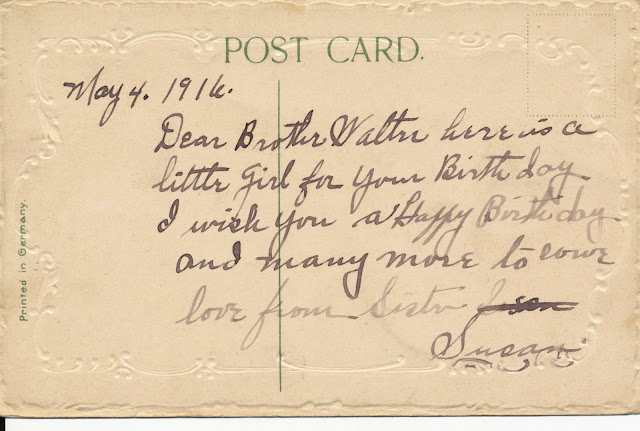 POST CARD.
May 4. 1916.
Dear Brother Walter here is a
little Girl for your Birth day
I wish you a Happy Birth day
and many more to come
love from Sister
Susan
Printed in Germany.